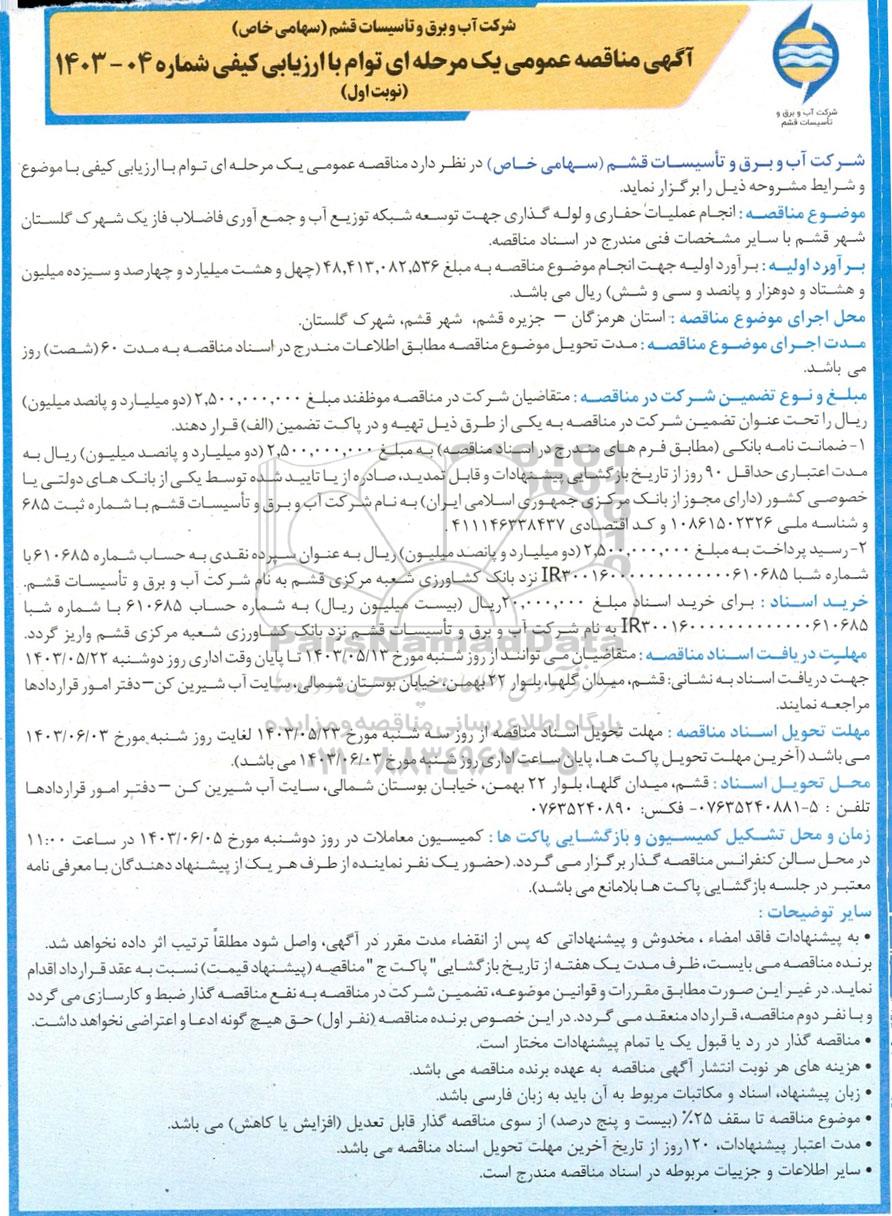 شرکت آب و برق و تأسیسات قشم (سهامی خاص)
آگهی مناقصه عمومی یک مرحله ای توام با ارزیابی کیفی شماره ۰۴ - ۱۴۰۳
(نوبت اول)
شرکت آب و برق و
تأسیسات قشم
شرکت آب و برق و تأسیسات قشم (سهامی خاص) در نظر دارد مناقصه عمومی یک مرحله ای توام با ارزیابی کیفی با موضوع
و شرایط مشروحه ذیل را برگزار نماید.
موضوع مناقصه : انجام عملیات حفاری و لوله گذاری جهت توسعه شبکه توزیع آب و جمع آوری فاضلاب فاز یک شهرک گلستان
شهر قشم با سایر مشخصات فنی مندرج در اسناد مناقصه.
برآورد اولیه : برآورد اولیه جهت انجام موضوع مناقصه به مبلغ ۴۸,۴۱۳,۰۸۲,۵۳۶ (چهل و هشت میلیارد و چهارصد و سیزده میلیون
و هشتاد و دوهزار و پانصد و سی و شش) ریال می باشد.
محل اجرای موضوع مناقصه : استان هرمزگان – جزیره قشم، شهر قشم، شهرک گلستان.
مدت اجرای موضوع مناقصه : مدت تحویل موضوع مناقصه مطابق اطلاعات مندرج در اسناد مناقصه به مدت ۶۰ (شصت) روز
می باشد.
مبلغ و نوع تضمین شرکت در مناقصه : متقاضیان شرکت در مناقصه موظفند مبلغ ۲,۵۰۰,۰۰۰,۰۰۰ (دو میلیارد و پانصد میلیون)
ریال را تحت عنوان تضمین شرکت در مناقصه به یکی از طرق ذیل تهیه و در پاکت تضمین (الف) قرار دهند.
۱- ضمانت نامه بانکی (مطابق فرم های مندرج در اسناد مناقصه) به مبلغ ۲,۵۰۰,۰۰۰,۰۰۰ (دو میلیارد و پانصد میلیون) ریال به
مدت اعتباری حداقل ۹۰ روز از تاریخ بازگشایی پیشنهادات و قابل تمدید، صادره از یا تایید شده توسط یکی از بانک های دولتی یا
خصوصی کشور (دارای مجوز از بانک مرکزی جمهوری اسلامی ایران) به نام شرکت آب و برق و تأسیسات قشم با شماره ثبت ۶۸۵
و شناسه ملی ۱۰۸۶۱۵۰۲۳۲۶ و کد اقتصادی ۴۱۱۱۴۶۳۳۸۴۳۷ .
۲- رسید پرداخت به مبلغ ۲,۵۰۰,۰۰۰,۰۰۰ (دو میلیارد و پانصد میلیون) ریال به عنوان سپرده نقدی به حساب شماره ۶۱۰۶۸۵ با
شماره شبا IR۳۰۰۱۶۰۰۰۰۰۰۰۰۰۰۰۰۰۰۶۱۰۶۸۵ نزد بانک کشاورزی شعبه مرکزی قشم به نام شرکت آب و برق و تأسیسات قشم.
خرید اسناد : برای خرید اسناد مبلغ ۲۰,۰۰۰,۰۰۰ ریال (بیست میلیون ریال) به شماره حساب ۶۱۰۶۸۵ با شماره شبا
IR۳۰۰۱۶۰۰۰۰۰۰۰۰۰۰۰۰۰۰۶۱۰۶۸۵ به نام شرکت آب و برق و تأسیسات قشم نزد بانک کشاورزی شعبه مرکزی قشم واریز گردد.
مهلت دریافت اسناد مناقصه : متقاضیان می توانند از روز شنبه مورخ ۱۴۰۳/۰۵/۱۳ تا پایان وقت اداری روز دوشنبه ۱۴۰۳/۰۵/۲۲
جهت دریافت اسناد به نشانی: قشم، میدان گلها، بلوار ۲۲ بهمن، خیابان بوستان شمالی، سایت آب شیرین کن – دفتر امور قراردادها
مراجعه نمایند.
مهلت تحویل اسناد مناقصه : مهلت تحویل اسناد مناقصه از روز سه شنبه مورخ ۱۴۰۳/۰۵/۲۳ لغایت روز شنبه مورخ ۱۴۰۳/۰۶/۰۳
می باشد (آخرین مهلت تحویل پاکت ها، پایان ساعت اداری روز شنبه مورخ ۱۴۰۳/۰۶/۰۳ می باشد).
محل تحویل اسناد : قشم، میدان گلها، بلوار ۲۲ بهمن، خیابان بوستان شمالی، سایت آب شیرین کن – دفتر امور قراردادها
تلفن : ۵-۰۷۶۳۵۲۴۰۸۸۱- فکس: ۰۷۶۳۵۲۴۰۸۹۰
زمان و محل تشکیل کمیسیون و بازگشایی پاکت ها : کمیسیون معاملات در روز دوشنبه مورخ ۱۴۰۳/۰۶/۰۵ در ساعت ۱۱:۰۰
در محل سالن کنفرانس مناقصه گذار برگزار می گردد. (حضور یک نفر نماینده از طرف هر یک از پیشنهاد دهندگان با معرفی نامه
معتبر در جلسه بازگشایی پاکت ها بلامانع می باشد).
سایر توضیحات :
• به پیشنهادات فاقد امضاء ، مخدوش و پیشنهاداتی که پس از انقضاء مدت مقرر در آگهی، واصل شود مطلقاً ترتیب اثر داده نخواهد شد.
برنده مناقصه می بایست، ظرف مدت یک هفته از تاریخ بازگشایی" پاکت ج "مناقصه (پیشنهاد قیمت) نسبت به عقد قرارداد اقدام
نماید. در غیر این صورت مطابق مقررات و قوانین موضوعه، تضمین شرکت در مناقصه به نفع مناقصه گذار ضبط و کارسازی می گردد
و با نفر دوم مناقصه، قرارداد منعقد می گردد. در این خصوص برنده مناقصه (نفر اول) حق هیچ گونه ادعا و اعتراضی نخواهد داشت.
• مناقصه گذار در رد یا قبول یک یا تمام پیشنهادات مختار است.
• هزینه های هر نوبت انتشار آگهی مناقصه به عهده برنده مناقصه می باشد.
• زبان پیشنهاد، اسناد و مکاتبات مربوط به آن باید به زبان فارسی باشد.
• موضوع مناقصه تا سقف ۲۵٪ (بیست و پنج درصد) از سوی مناقصه گذار قابل تعدیل (افزایش یا کاهش) می باشد.
• مدت اعتبار پیشنهادات، ۱۲۰ روز از تاریخ آخرین مهلت تحویل اسناد مناقصه می باشد.
• سایر اطلاعات و جزییات مربوطه در اسناد مناقصه مندرج است.
ParsNamadData
پایگاه اطلاع رسانی مناقصه و مزایده
۰۲۱-۸۸۳۴۹۶۷۰-۵